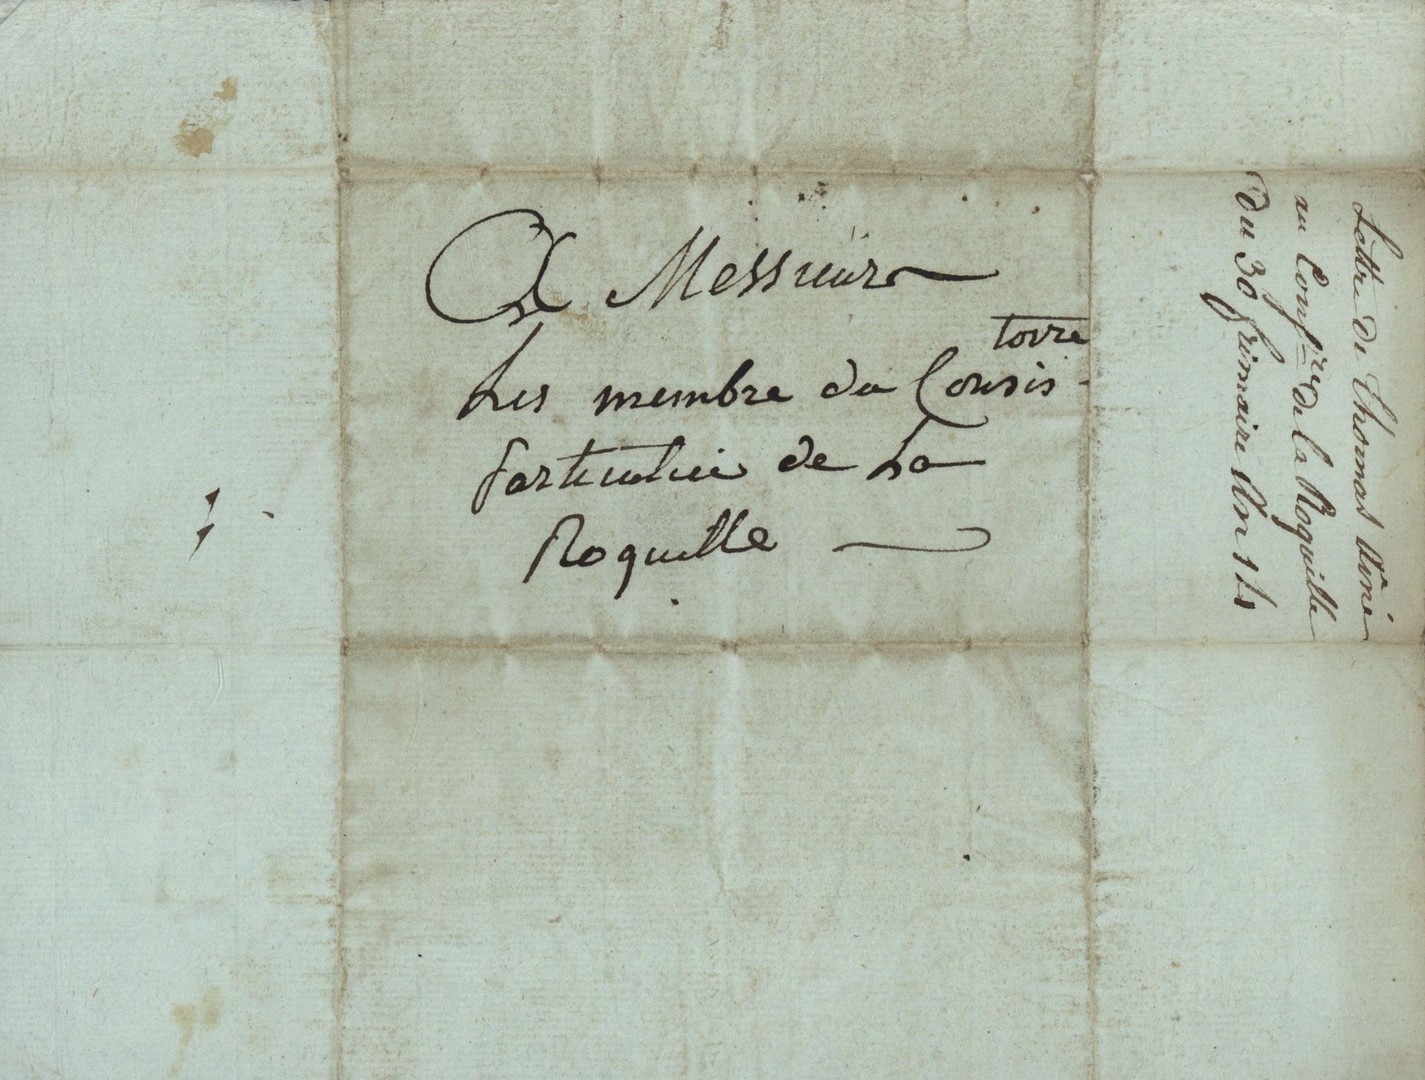 A Messieurs
Les membre du Consis-
toire
particulier de La
Roquille
Lettre de Thomas Aimé
au Consre de la Roquille
du 30 frimaire An 14